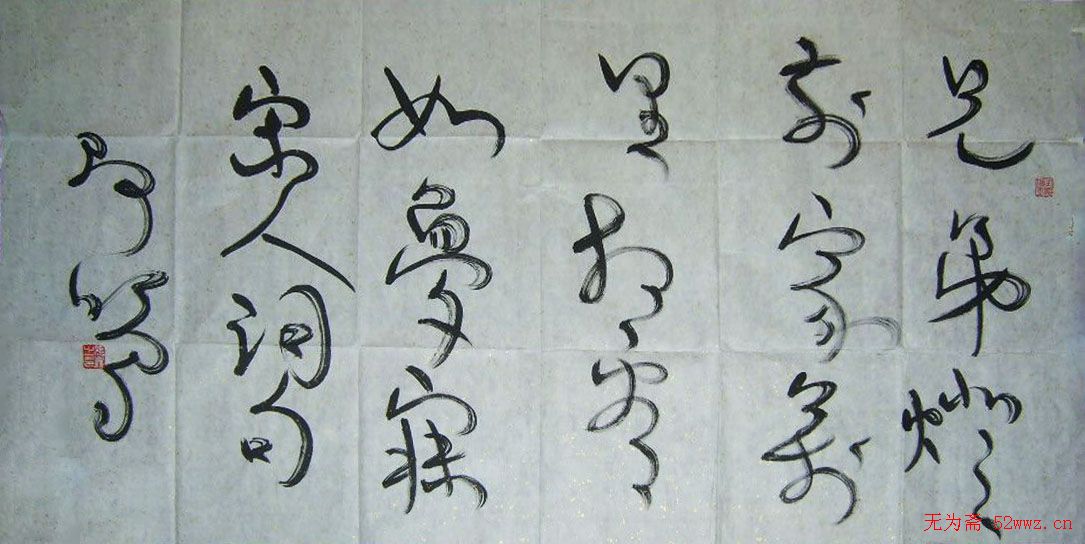 兄弟燈
前家萬
里相看
如夢寐
宋人词句
无为斋 52wwz.cn